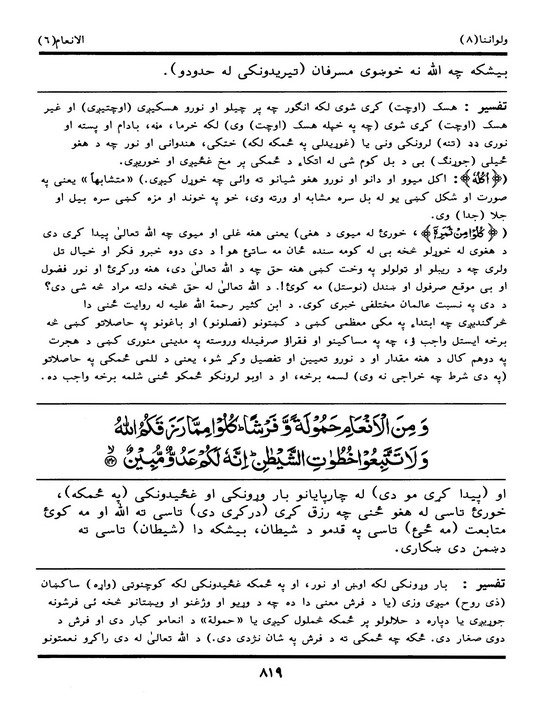 ولواننا (۸) الانعام (٦)
بیشکه چه الله نه خوښوی مسرفان (تیریدونکی له حدودو).
تفسیر : هسک (اوچت) کړی شوی لکه انګور چه پر چیلو او نورو هسکیږی (اوچتیږی) او غیر
هسک (اوچت) کړی شوی (چه په خپله هسک (اوچت) وی) لکه خرما، مڼه، بادام او پسته او
نوری ډډ (تنه) لرونکی ونی یا (غوړیدلی په ځمکه لکه) ختکی، هندوانی او نور چه د هغو
ځیلی (جوړنګ) بی د بل کوم شی له اتکاء د ځمکی پر مخ غځیږی او خوریږی.
(﴿اُكُلُهٗ﴾: اکل میوو او دانو او نورو هغو شیانو ته وائی چه خوړل کیږی.) «متشابهاً» یعنی په
صورت او شکل کښی یو له بل سره مشابه او ورته وی، خو په خوند او مزه کښی سره بیل او
جلا (جدا) وی.
(﴿كُلُوْا مِنْ ثَمَرِهٖٓ﴾، خورئ له میوی د هغی) یعنی هغه غلی او میوی چه الله تعالیٰ پیدا کړی دی
د هغوی له خوړلو څخه بی له کومه سنده ځان مه ساتئ هو! د دی دوه خبرو فکر او خیال تل
ولری چه د ریبلو او تولولو په وخت کښی هغه حق چه د الله تعالیٰ دی، هغه ورکړئ او نور فضول
او بی موقع صرفول او ښندل (نوستل) مه کوئ!. د الله تعالیٰ له حق څخه دلته مراد څه شی دی؟
د دی په نسبت عالمان مختلفی خبری کوی. د ابن کثیر رحمة الله علیه له روایت څنی دا
څرګندیږی چه ابتداء په مکی معظمی کښی د کښتونو (فصلونو) او باغونو په حاصلاتو کښی څه
برخه ایستل واجب ؤ، چه په مساکینو او فقراؤ صرفیدله وروسته په مدینی منوری کښی د هجرت
په دوهم کال د هغه مقدار او د نورو تعیین او تفصیل وکړ شو، یعنی د للمی ځمکی په حاصلاتو
(په دی شرط چه خراجی نه وی) لسمه برخه، او د اوبو لرونکو ځمکو څنی شلمه برخه واجب ده.
وَمِنَ الْاَنْعَامِ حَمُوْلَةً وَّفَرْشًا ؕ كُلُوْا مِمَّا رَزَقَكُمُ اللّٰهُ
وَلَا تَتَّبِعُوْا خُطُوٰتِ الشَّيْطٰنِ ؕ اِنَّهٗ لَكُمْ عَدُوٌّ مُّبِيْنٌ ۙ
او (پیدا کړی مو دی) له چارپایانو بار وړونکی او غځیدونکی (په ځمکه)،
خورئ تاسی له هغو څنی چه رزق کړی (درکړی دی) تاسی ته الله او مه کوئ
متابعت (مه ځئ) تاسی په قدمو د شیطان، بیشکه دا (شیطان) تاسی ته
دښمن دی ښکاری.
تفسیر : بار وړونکی لکه اوښ او نور، او په ځمکه غځیدونکی لکه کوچنوتی (واړه) ساکښان
(ذی روح) میږی وزی (یا د فرش معنی دا ده چه د وړیو او وژغنو او ویښتانو څخه ئی فرشونه
جوړیږی یا دپاره د حلالولو پر ځمکه څملول کیږی یا «حمولة» د انعامو کبار دی او فرش د
دوی صغار دی. ځکه چه ځمکی ته د فرش په شان نژدی دی.) د الله تعالیٰ له دی راکړو نعمتونو
۸۱۹